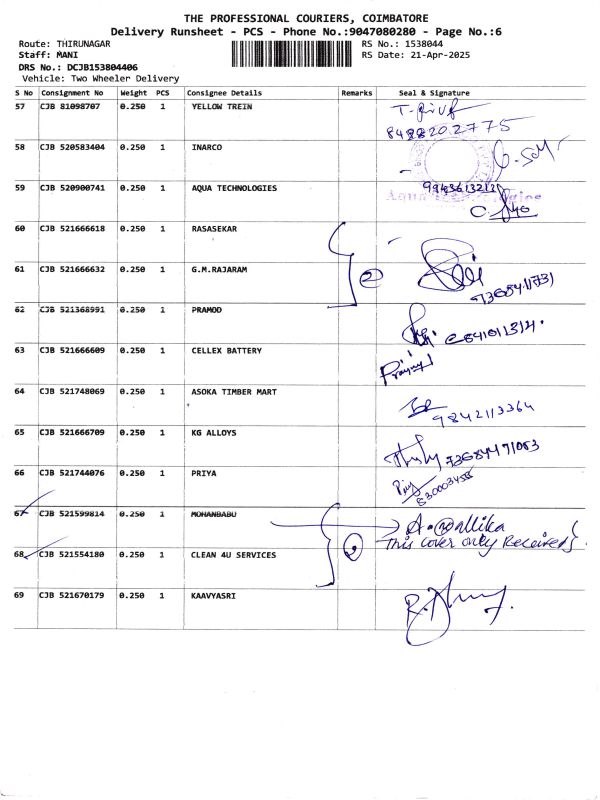 THE PROFESSIONAL COURIERS, COIMBATORE
Delivery Runsheet - PCS - Phone No.:9047080280 - Page No.:6
Route: THIRUNAGAR RS No.: 1538044
Staff: MANI RS Date: 21-Apr-2025
DRS No.: DCJB153804406
Vehicle: Two Wheeler Delivery
S No Consignment No Weight PCS Consignee Details Remarks Seal & Signature
57 CJB 81098707 0.250 1 YELLOW TREIN
58 CJB 520583404 0.250 1 INARCO
59 CJB 520900741 0.250 1 AQUA TECHNOLOGIES
60 CJB 521666618 0.250 1 RASASEKAR
61 CJB 521666632 0.250 1 G.M.RAJARAM 2
62 CJB 521368991 0.250 1 PRAMOD
63 CJB 521666609 0.250 1 CELLEX BATTERY
64 CJB 521748069 0.250 1 ASOKA TIMBER MART
9842113364
65 CJB 521666709 0.250 1 KG ALLOYS
66 CJB 521744076 0.250 1 PRIYA
67 CJB 521599814 0.250 1 MOHANBABU
This cover only Received
68 CJB 521554180 0.250 1 CLEAN 4U SERVICES 2
69 CJB 521670179 0.250 1 KAAVYASRI